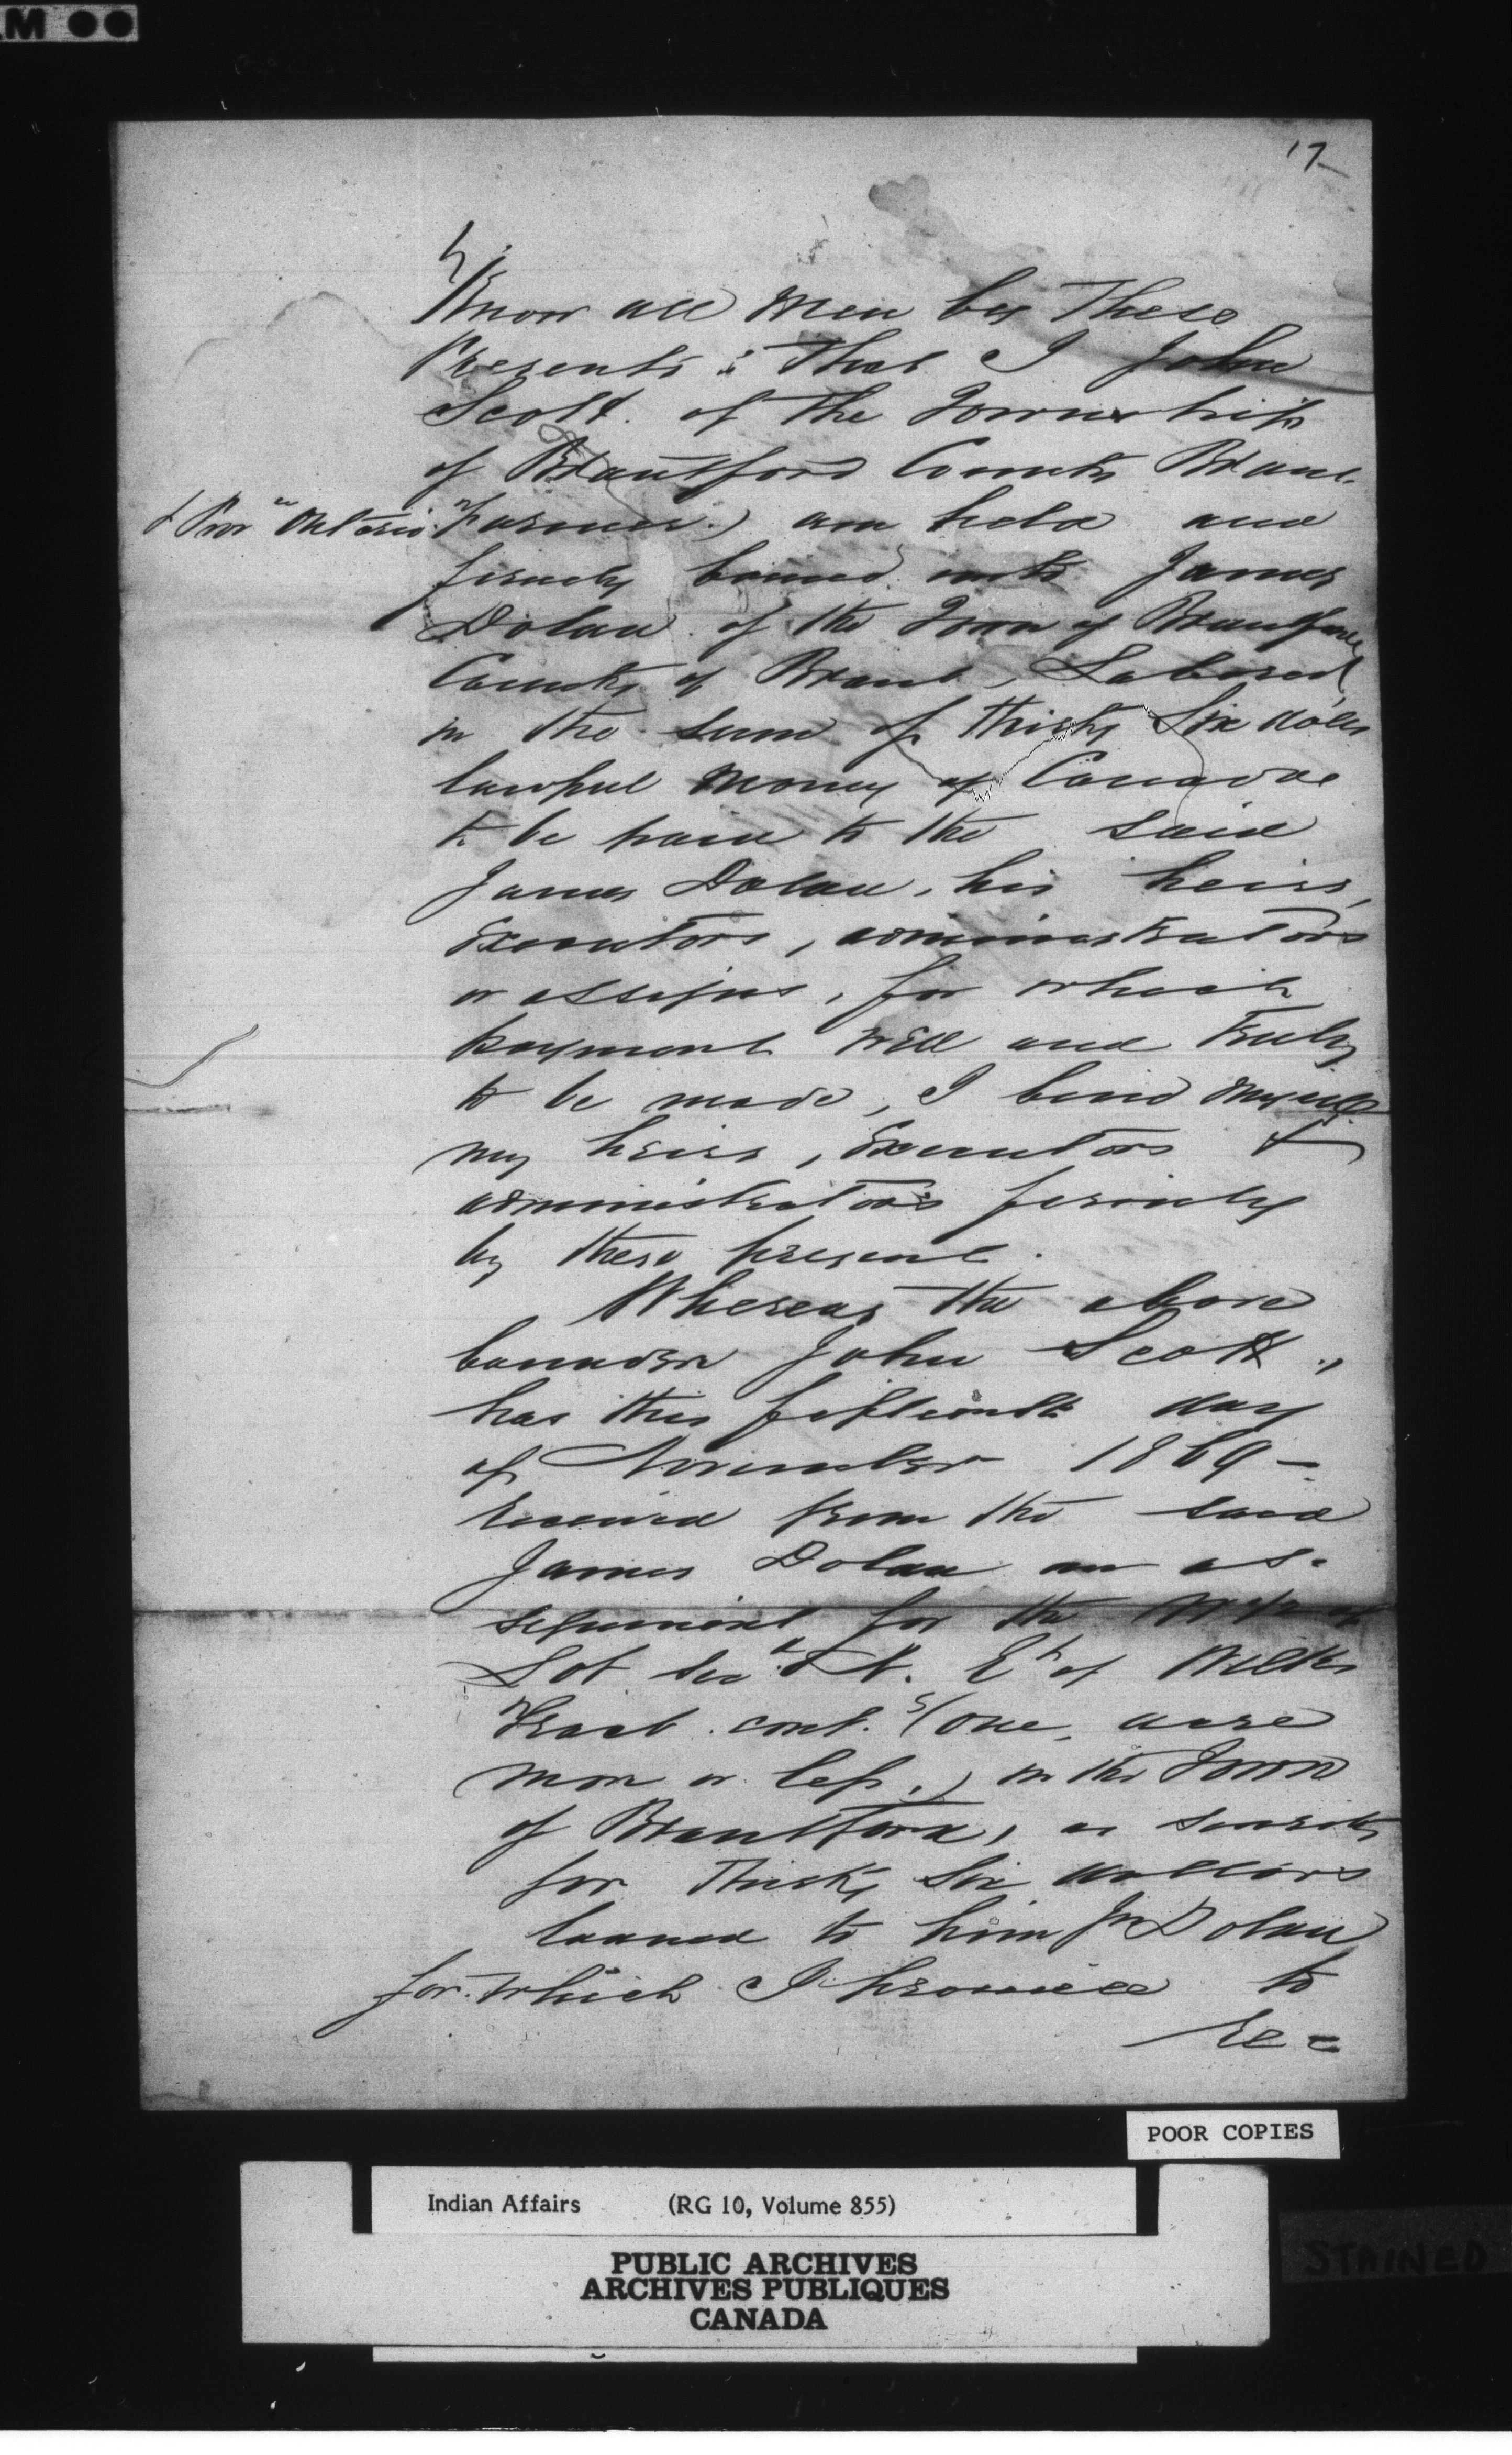 17
Know all Men by These
Presents: That I John
Scott. of the Township
of Brantford County Brant.
& Prov Ontario Farmer.) am held and
firmly bound unto James
Dolan of the Town of Brantford
County of Brant, Laborer,
in the sum of thirty Six dollrs
lawful money of Canada
to be paid to the said
James Dolan, his heirs,
Executors, administrators
or assigns, for which
payment well and truly
to be made, I bind myself
my heirs, Executors &
administrators firmly
by these present.
Whereas the above
bounden John Scott,
has this fifteenth day
of November 1869 -
received from the said
James Dolan an as-
signment for the
Lot N. E of Wilkes
Tract. cont. (one, acre
more or less,) in the Town
of Brantford, as security
for Thirty Six dollars
loaned to him Js Dolan
for which I promise to
Re=
POOR COPIES
Indian Affairs (RG 10, Volume 855)
PUBLIC ARCHIVES
ARCHIVES PUBLIQUES
CANADA
STAINED